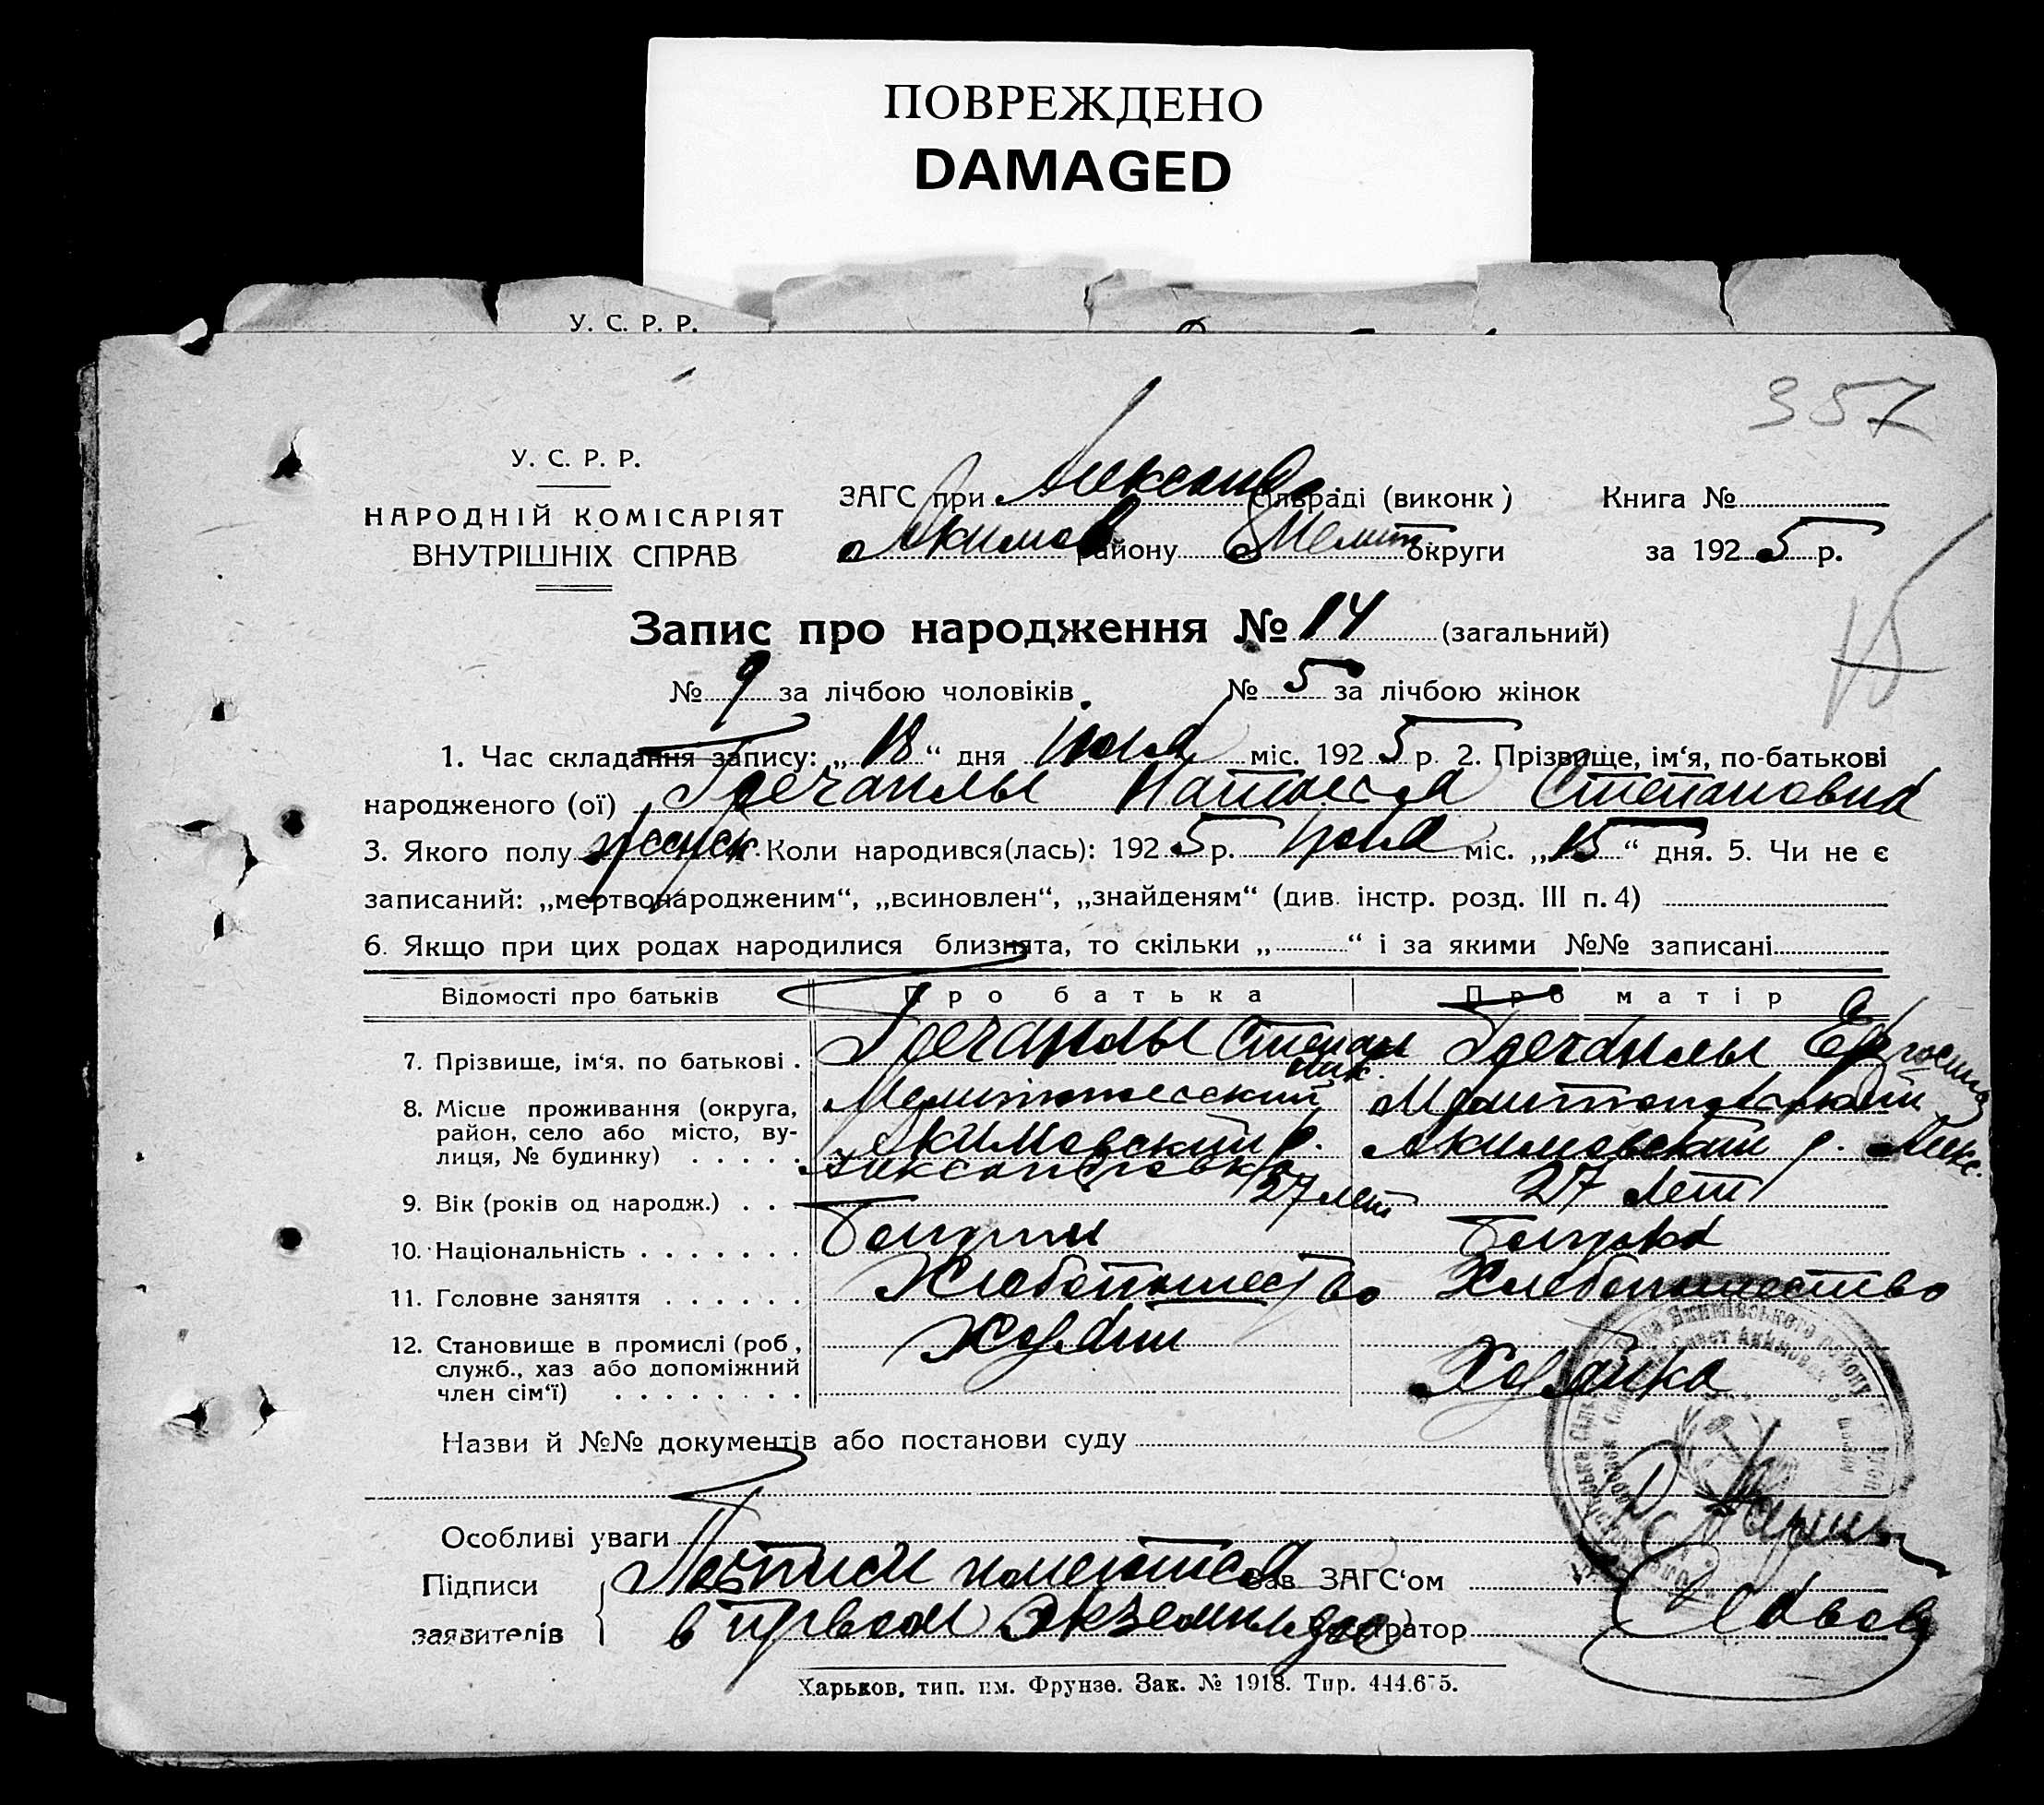 ПОВРЕЖДЕНО
DAMAGED
У. С. Р. Р.
357
У. С. Р. Р.
НАРОДНІЙ КОМІСАРІЯТ
ВНУТРІШНІХ СПРАВ
ЗАГС при Александ. сільраді (виконк) Книга №
Акимов району Мелит округи за 1925 р.
Запис про народження № 14 (загальний)
15
№ 9 за лічбою чоловіків. № 5 за лічбою жінок
1. Час складання запису: „18“ дня июня міс. 1925 р. 2. Прізвище, ім‘я, по-батькові
народженого (ої) Степановна
3. Якого полу женск. Коли народився(лась): 1925 р. июня міс. „15“ дня. 5. Чи не є
записаний: „мертвонародженим“, „всиновлен“, „знайденям“ (див. інстр. розд. III п. 4)
6. Якщо при цих родах народилися близнята, то скільки „ “ і за якими №№ записані
Відомості про батьків Про батька Про матір
7. Прізвище, ім‘я, по батькові . Степан
Ник.
8. Місце проживання (округа, Мелитопольский Мелитопольский
район, село або місто, ву- Акимовский р. Акимовский р. Алекс.
лиця, № будинку) . . . . . Александровка
9. Вік (років од народж.) . . 27 лет 27 лет
10. Національність . . . . . . . Болгарин Болгарка
11. Головне заняття . . . . . . Хлебопашество Хлебопашество
12. Становище в промислі (роб, Хозяин
служб., хаз або допоміжний Хозяйка
член сім‘ї) . . . . . . . .
Якимівського району
Назви й №№ документів або постанови суду
Особливі уваги
Підписи Подписи имеются Зав ЗАГС‘ом
заявителів в первом экземпляре стратор
Харьков, тип. им. Фрунзе. Зак. № 1918. Тир. 444.675.